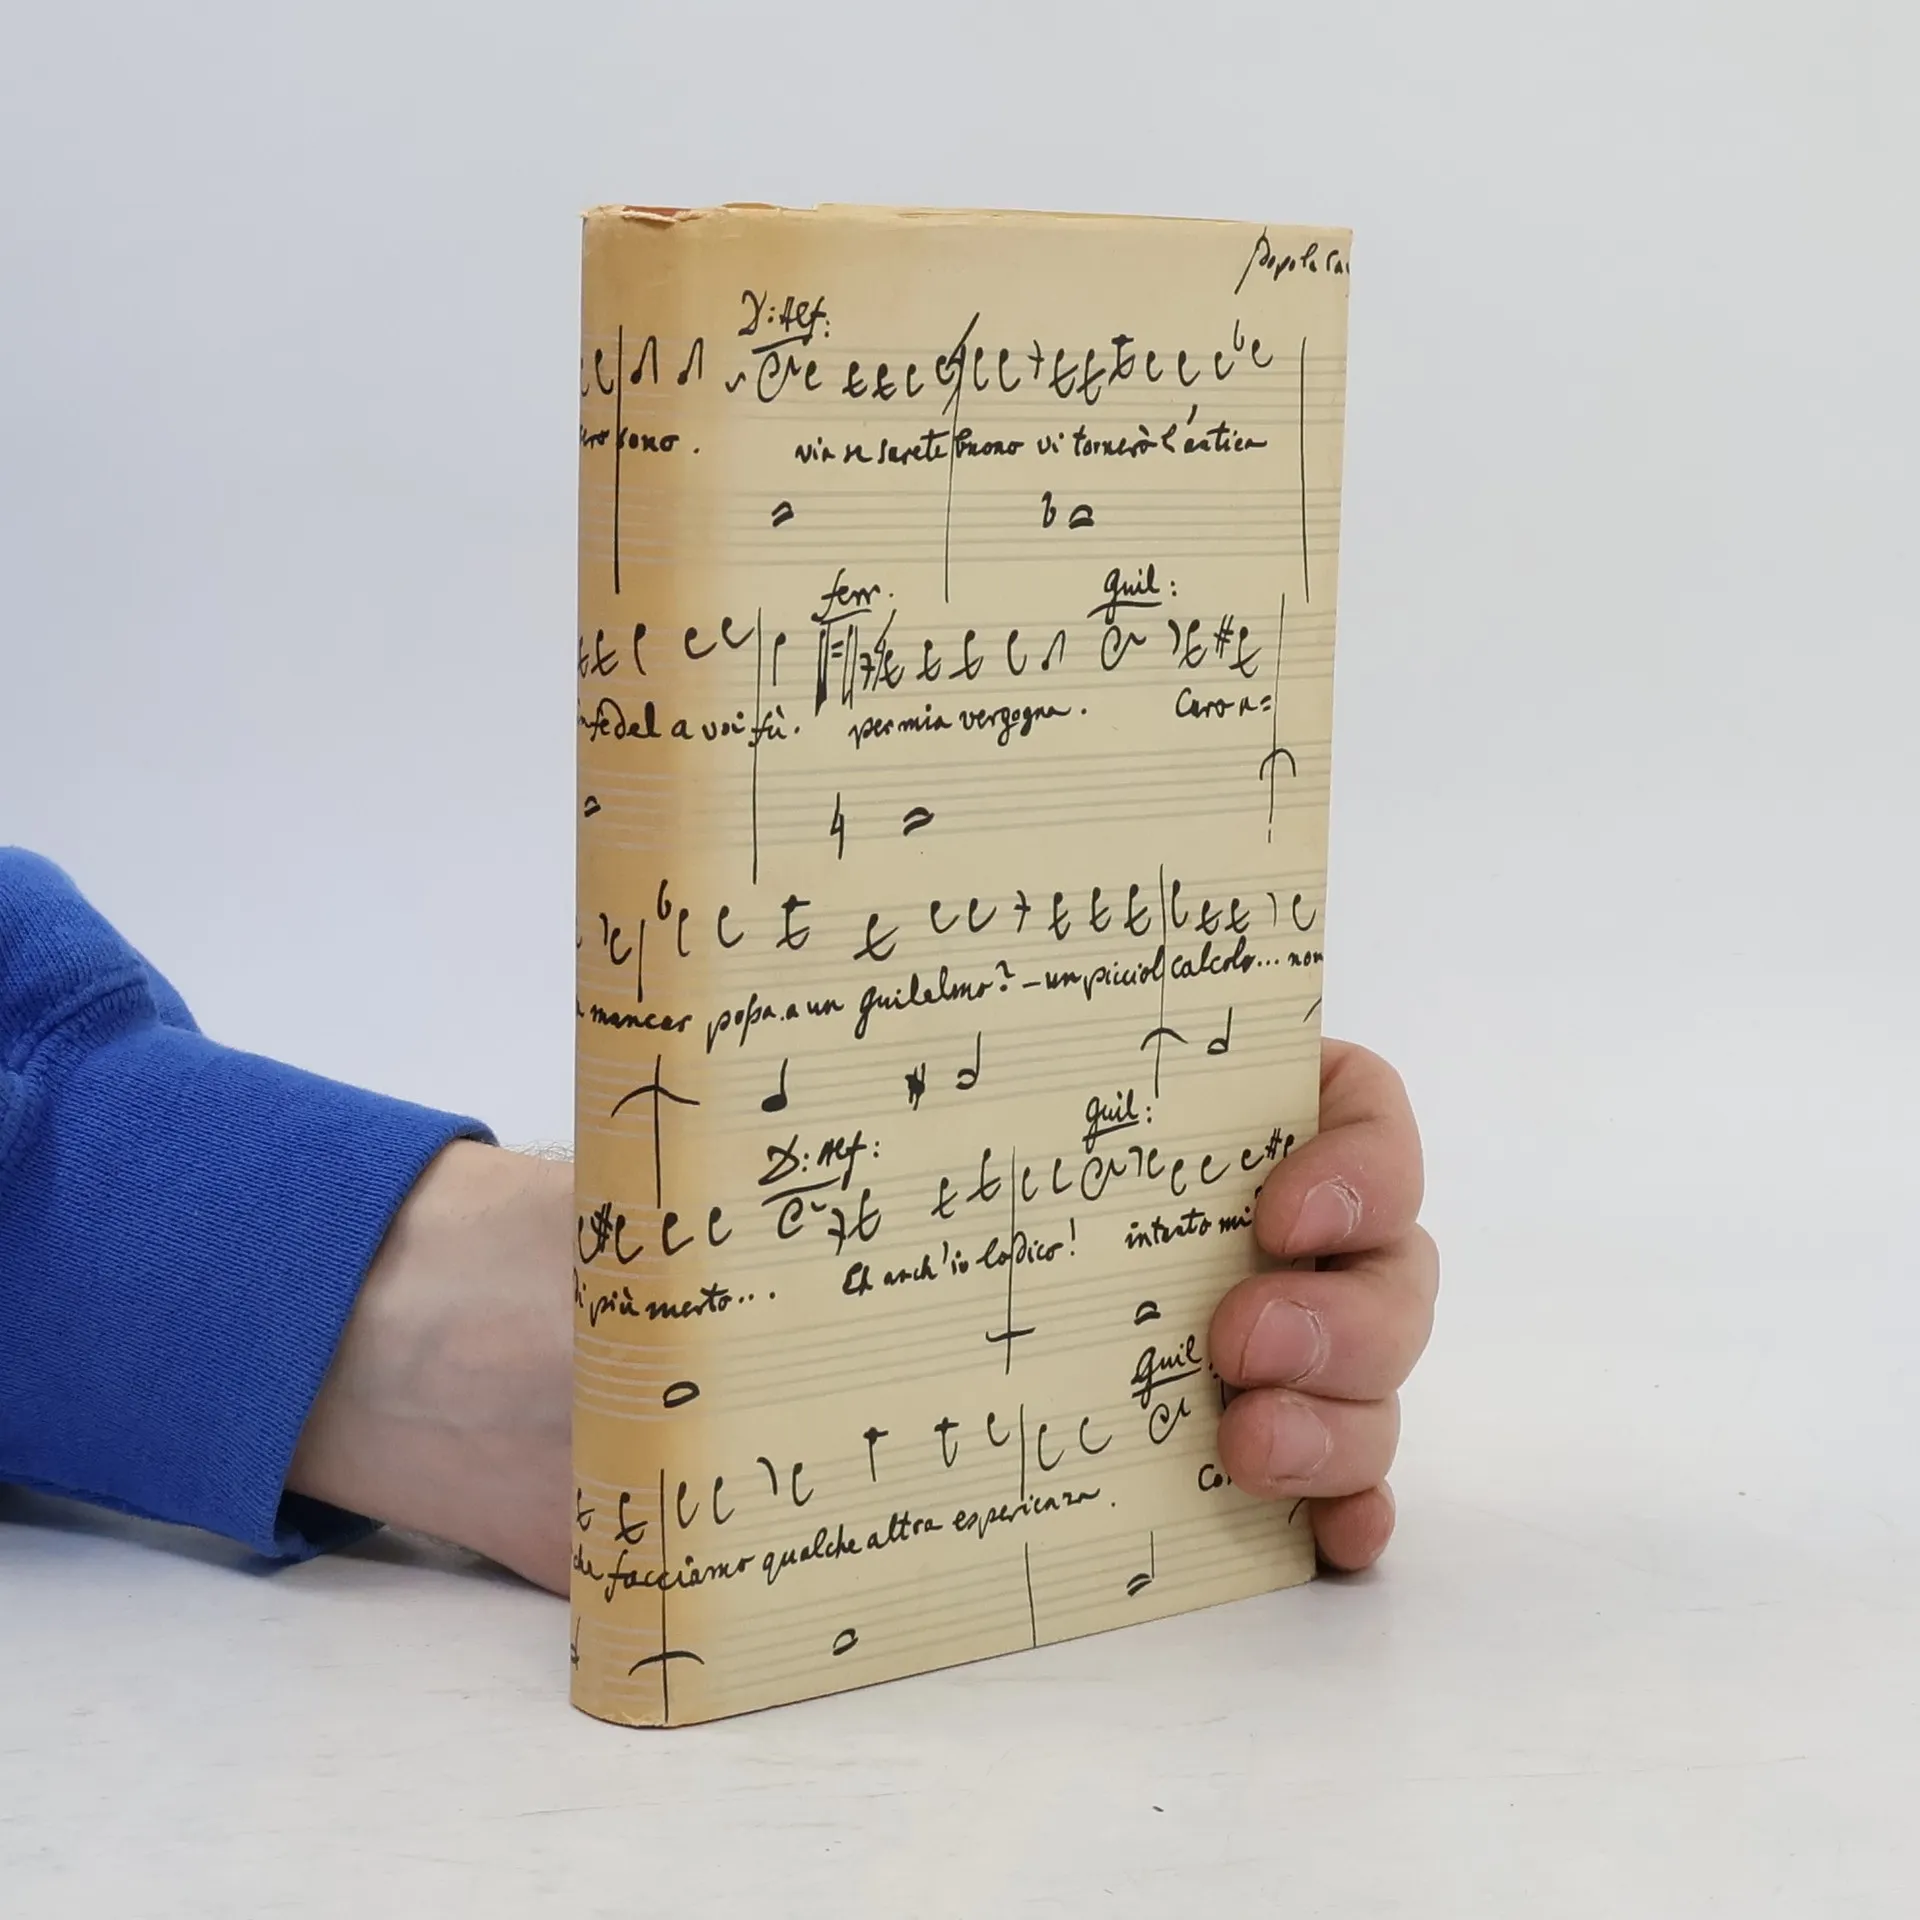 D: Alf:
sono. via se sarete buono vi tornerò l'antica
ferr. Guil:
fedel a voi fù. per mia vergogna. Caro a=
mancar possa a un Guilelmo? – un picciol calcolo... non
D: Alf: Guil:
di più merto... Eh anch'io lo dico! intanto mi
Guil
che facciamo qualche altra esperienza.